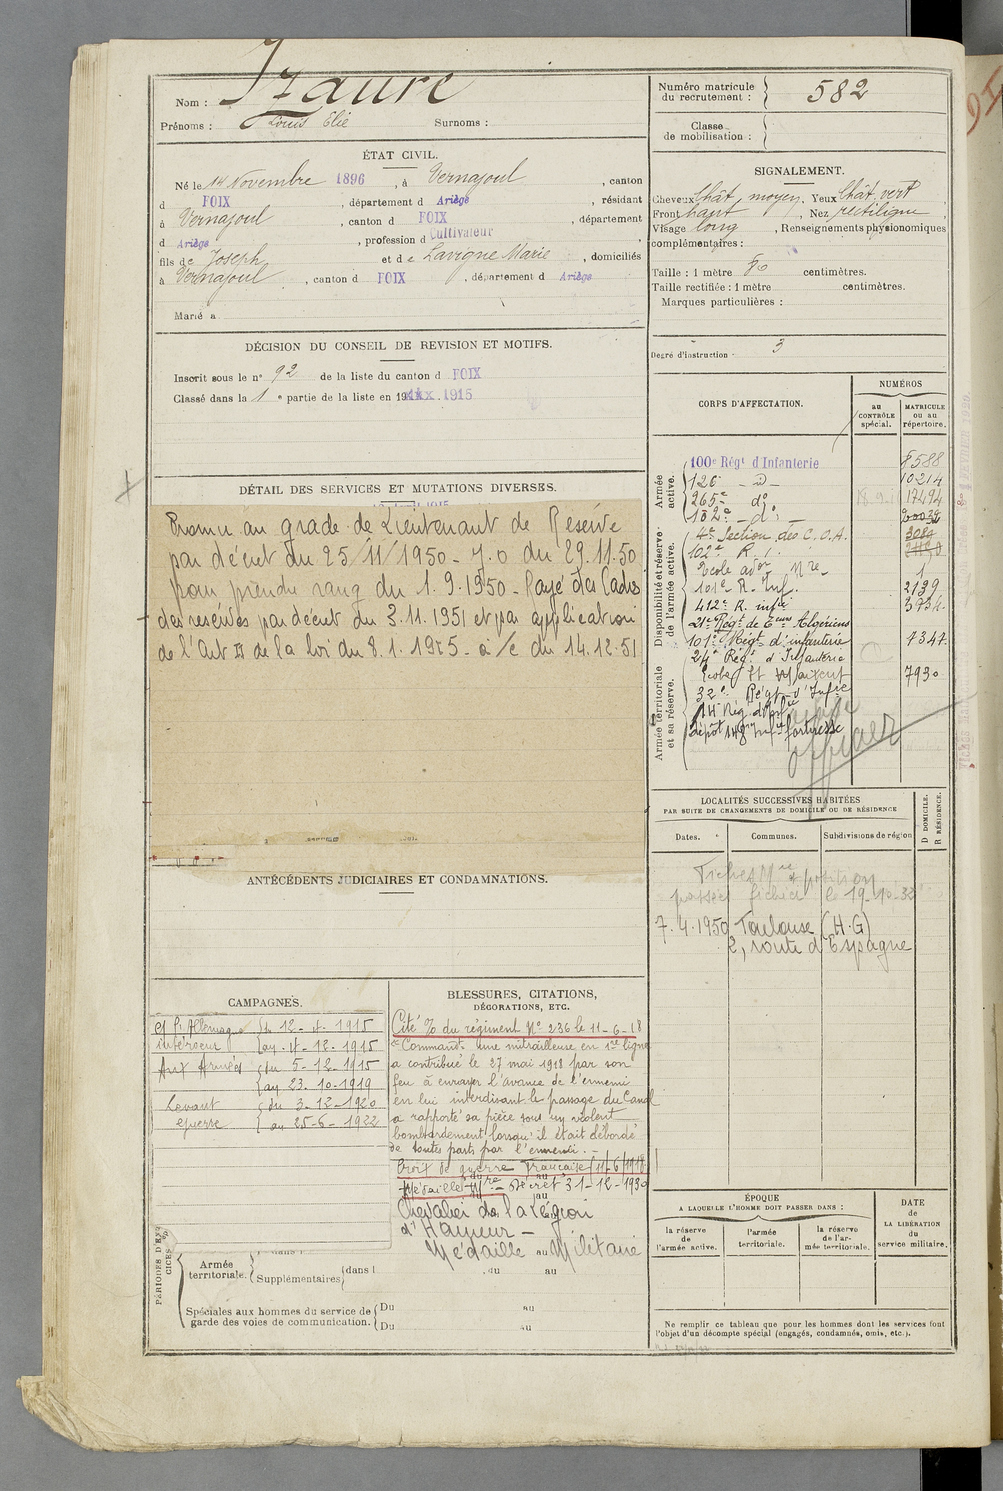 Nom : Izaure
Prénoms : Louis Elie Surnoms :
ÉTAT CIVIL.
Né le 14 Novembre 1896, à Vernajoul, canton
d FOIX, département d Ariège, résidant
à Vernajoul, canton d FOIX, département
d Ariège, profession d Cultivateur,
fils de Joseph et de Lavigne Marie, domiciliés
à Vernajoul, canton d FOIX, département d Ariège
Marié à
DÉCISION DU CONSEIL DE REVISION ET MOTIFS.
Inscrit sous le n° 92 de la liste du canton d FOIX
Classé dans la 1e partie de la liste en 1915
DÉTAIL DES SERVICES ET MUTATIONS DIVERSES.
Promu au grade de Lieutenant de Réserve
par décret du 25/11/1950 - J.O du 29.11.50
pour prendre rang du 1.9.1950 - Rayé des Cadres
des réserves par décret du 3.11.1951 et par application
de l'Art de la loi du 8.1.1925 - à /c du 14.12.51
ANTÉCÉDENTS JUDICIAIRES ET CONDAMNATIONS.
CAMPAGNES.
Allemagne du 12-4-1915
intérieur au 4-12-1915
Aux Armées du 5-12-1915
au 23-10-1919
Levant du 3-12-1920
guerre au 25-6-1922
PÉRIODES D'EXERCICES
Armée territoriale.
Supplémentaires dans l
du au
Spéciales aux hommes du service de garde des voies de communication.
Du au
Du au
BLESSURES, CITATIONS,
DÉCORATIONS, ETC.
Cité à l'O/ du régiment N° 236 le 11-6-18
Commandt une mitrailleuse en 1ère ligne
a contribué le 27 mai 1918 par son
feu à enrayer l'avance de l'ennemi
en lui interdisant le passage du Canal
a rapporté sa pièce sous un violent
bombardement lorsqu'il était débordé
de toutes parts par l'ennemi. -
Croix de guerre Française (11/6/1918)
Médaille Mre - Décret 31-12-1930
Chevalier de la Légion
d'Honneur -
Médaille Militaire
Numéro matricule du recrutement : 582
Classe de mobilisation :
SIGNALEMENT.
Cheveux chât. moyen. Yeux chât. vert
Front haut, Nez rectiligne,
Visage long, Renseignements physionomiques
complémentaires :
Taille : 1 mètre 80 centimètres.
Taille rectifiée : 1 mètre centimètres.
Marques particulières :
Degré d'instruction 3
CORPS D'AFFECTATION.
NUMÉROS
au CONTRÔLE spécial.
MATRICULE ou au répertoire.
Armée active.
Disponibilité et réserve de l'armée active.
Armée territoriale et sa réserve.
100e Régt d'Infanterie 8588
126 - d - 10214
265e do 17494
132e - do -
4e Section des C.O.A. 3084
102e R.I.
Ecole admon Mre 1
101e R. Inf. 2139
412e R. infie 3734
21e Régt de Teurs Algériens
101e Régt d'infanterie 7347
24e Rég. d'Infanterie
Ecole St Maixent 7930
32e Régt d'Infie
14e Rég. d'Infie
dépôt 148 Infie forteresse
officier
LOCALITÉS SUCCESSIVES HABITÉES
PAR SUITE DE CHANGEMENTS DE DOMICILE OU DE RÉSIDENCE
Dates. Communes. Subdivisions de région
D DOMICILE.
R RÉSIDENCE.
Fiches Mre
passées fichier le 19-10-32
7.4.1950 Toulouse (H.G)
2, route d'Espagne
ÉPOQUE
A LAQUELLE L'HOMME DOIT PASSER DANS :
la réserve de l'armée active.
l'armée territoriale.
la réserve de l'armée territoriale.
DATE de LA LIBÉRATION du service militaire.
Ne remplir ce tableau que pour les hommes dont les services font
l'objet d'un décompte spécial (engagés, condamnés, omis, etc.).